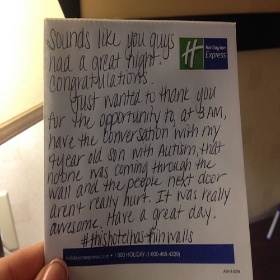 Sounds like you guys
had a great night!
Congratulations.
Just wanted to thank you
for the opportunity to, at 3AM,
have the conversation with my
4 year old son with Autism, that
noone was coming through the
wall and the people next door
aren't really hurt. It was really
awesome. Have a great day.
#thishotelhasthinwalls
H
Holiday Inn
Express
hiexpress.com • 1 800 HOLIDAY (1-800-465-4329)